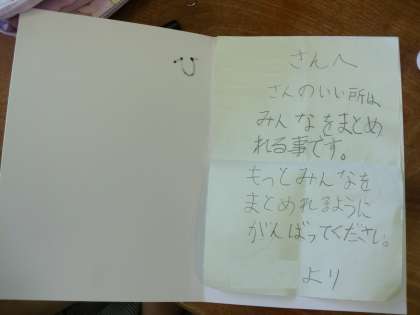 さんへ
さんのいい所は
みんなをまとめ
れる事です。
もっとみんなを
まとめれるように
がんばってください。
より